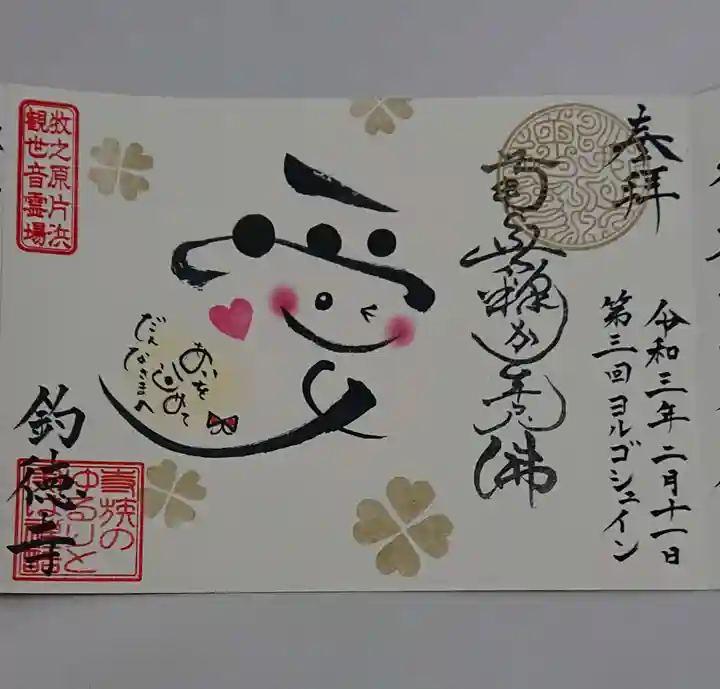 奉拝
令和三年二月十一日
第三回ヨルゴシュイン
南無釋か牟尼佛
愛
あいを込めて
だんなさまへ
牧之原片浜
観世音霊場
釣徳寺
ゆるりと